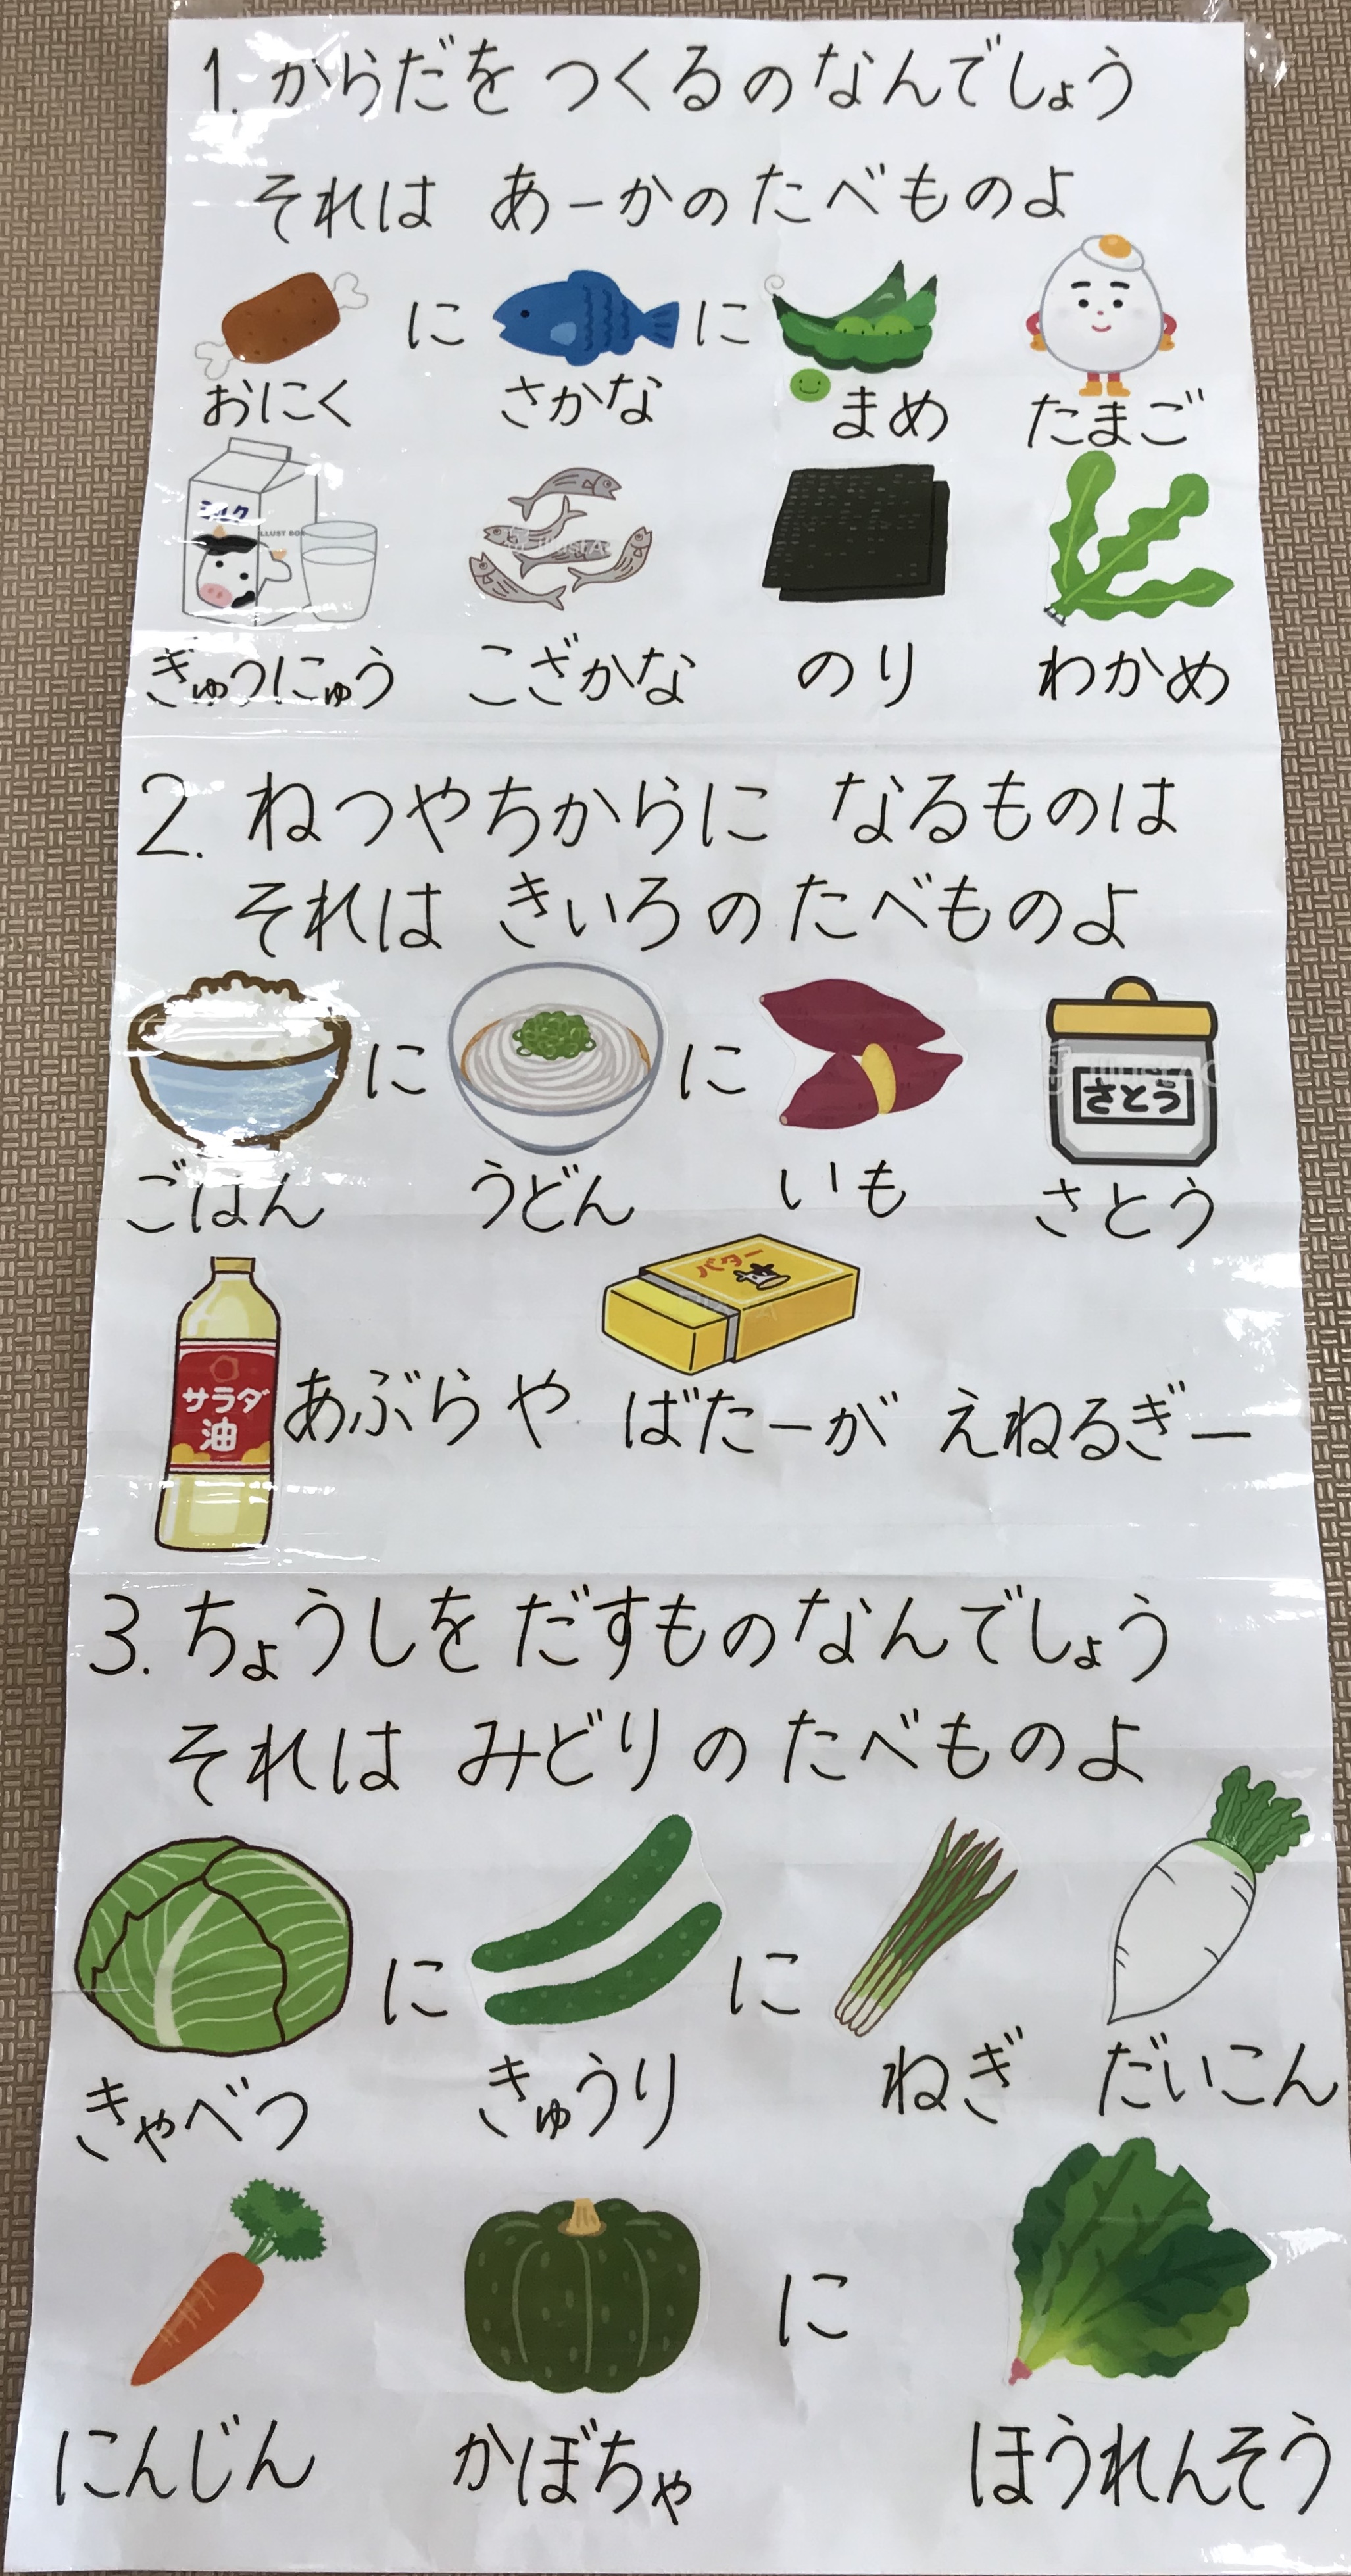 1. からだを つくるのなんでしょう
それは あーかのたべものよ
に に
おにく さかな まめ たまご
ミルク
ぎゅうにゅう こざかな のり わかめ
2. ねつやちからに なるものは
それは きいろのたべものよ
に に
さとう
ごはん うどん いも さとう
バター
サラダ
油
あぶらや ばたーが えねるぎー
3. ちょうしを だすものなんでしょう
それは みどりのたべものよ
に に
きゃべつ きゅうり ねぎ だいこん
に
にんじん かぼちゃ ほうれんそう